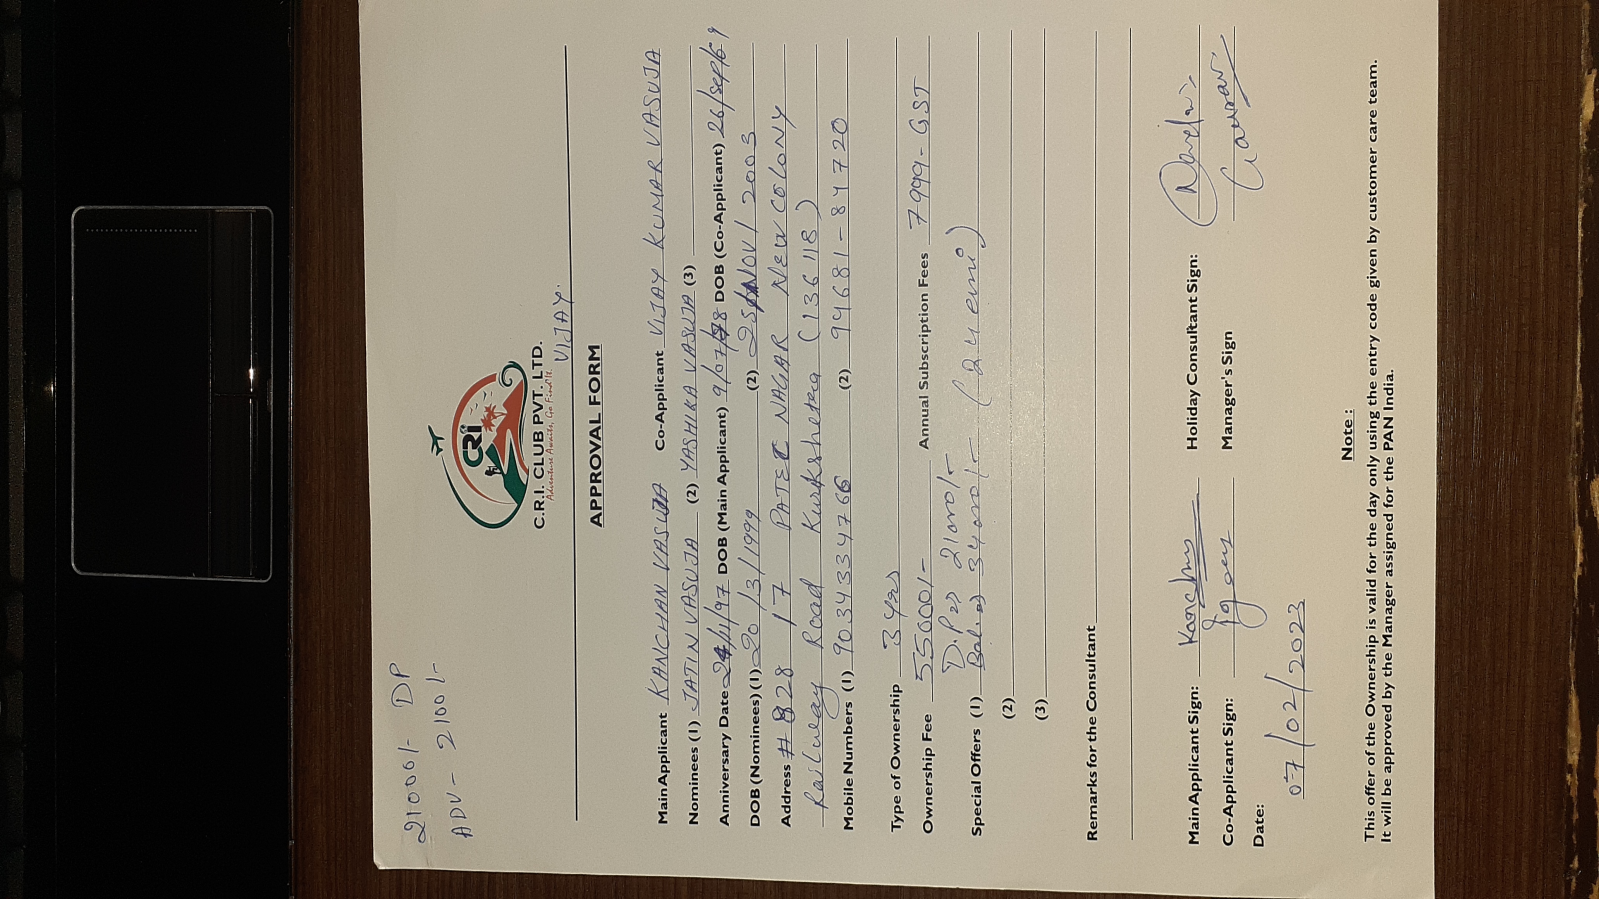 21000/- DP
ADV - 2100/-
CRI
C.R.I. CLUB PVT. LTD.
Adventure Awaits, Go Find It.
VIJAY.
APPROVAL FORM
Main Applicant KANCHAN VASUJA Co-Applicant VIJAY KUMAR VASUJA
Nominees (1) JATIN VASUJA (2) YASHIKA VASUJA (3)
Anniversary Date 24/11/97 DOB (Main Applicant) 9/07/78 DOB (Co-Applicant) 26/Sep/69
DOB (Nominees) (1) 20/3/1999 (2) 25/NOV/2003
Address # 828 17 PATEL NAGAR NEW COLONY
Railway Road Kurukshetra (136118)
Mobile Numbers (1) 9034334766 (2) 94681-84720
Type of Ownership 3 yrs
Ownership Fee 55000/- Annual Subscription Fees 7999-GST
D.P => 21000/-
Special Offers (1) Bal. => 34000/- (24 emi)
(2)
(3)
Remarks for the Consultant
Main Applicant Sign: Kanchan Holiday Consultant Sign:
Co-Applicant Sign: Manager's Sign Gaurav
Date:
07/02/2023
Note :
This offer of the Ownership is valid for the day only using the entry code given by customer care team.
It will be approved by the Manager assigned for the PAN India.